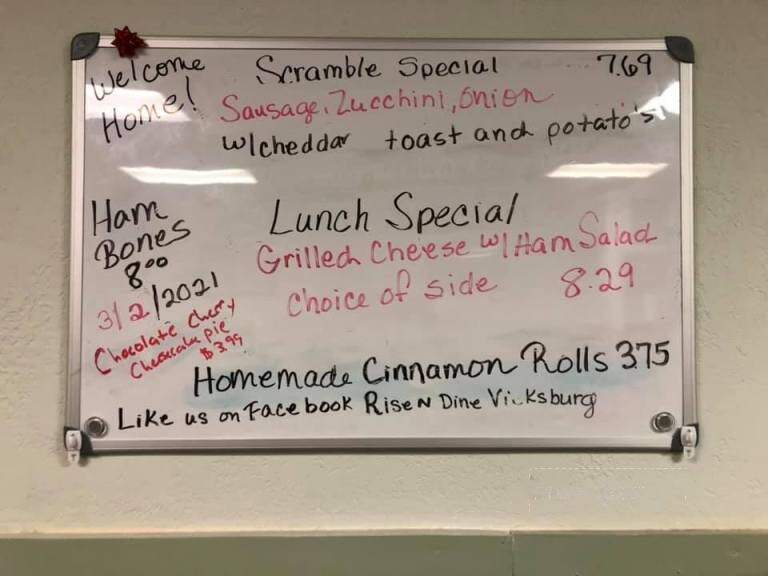 Welcome Home!
Scramble Special 7.69
Sausage, Zucchini, Onion
w/cheddar toast and potato's
Ham
Bones
8.00
3/2/2021
Chocolate Cherry
Cheesecake pie
$3.99
Lunch Special
Grilled Cheese w/ Ham Salad
Choice of side 8.29
Homemade Cinnamon Rolls 3.75
Like us on Facebook Rise N Dine Vicksburg